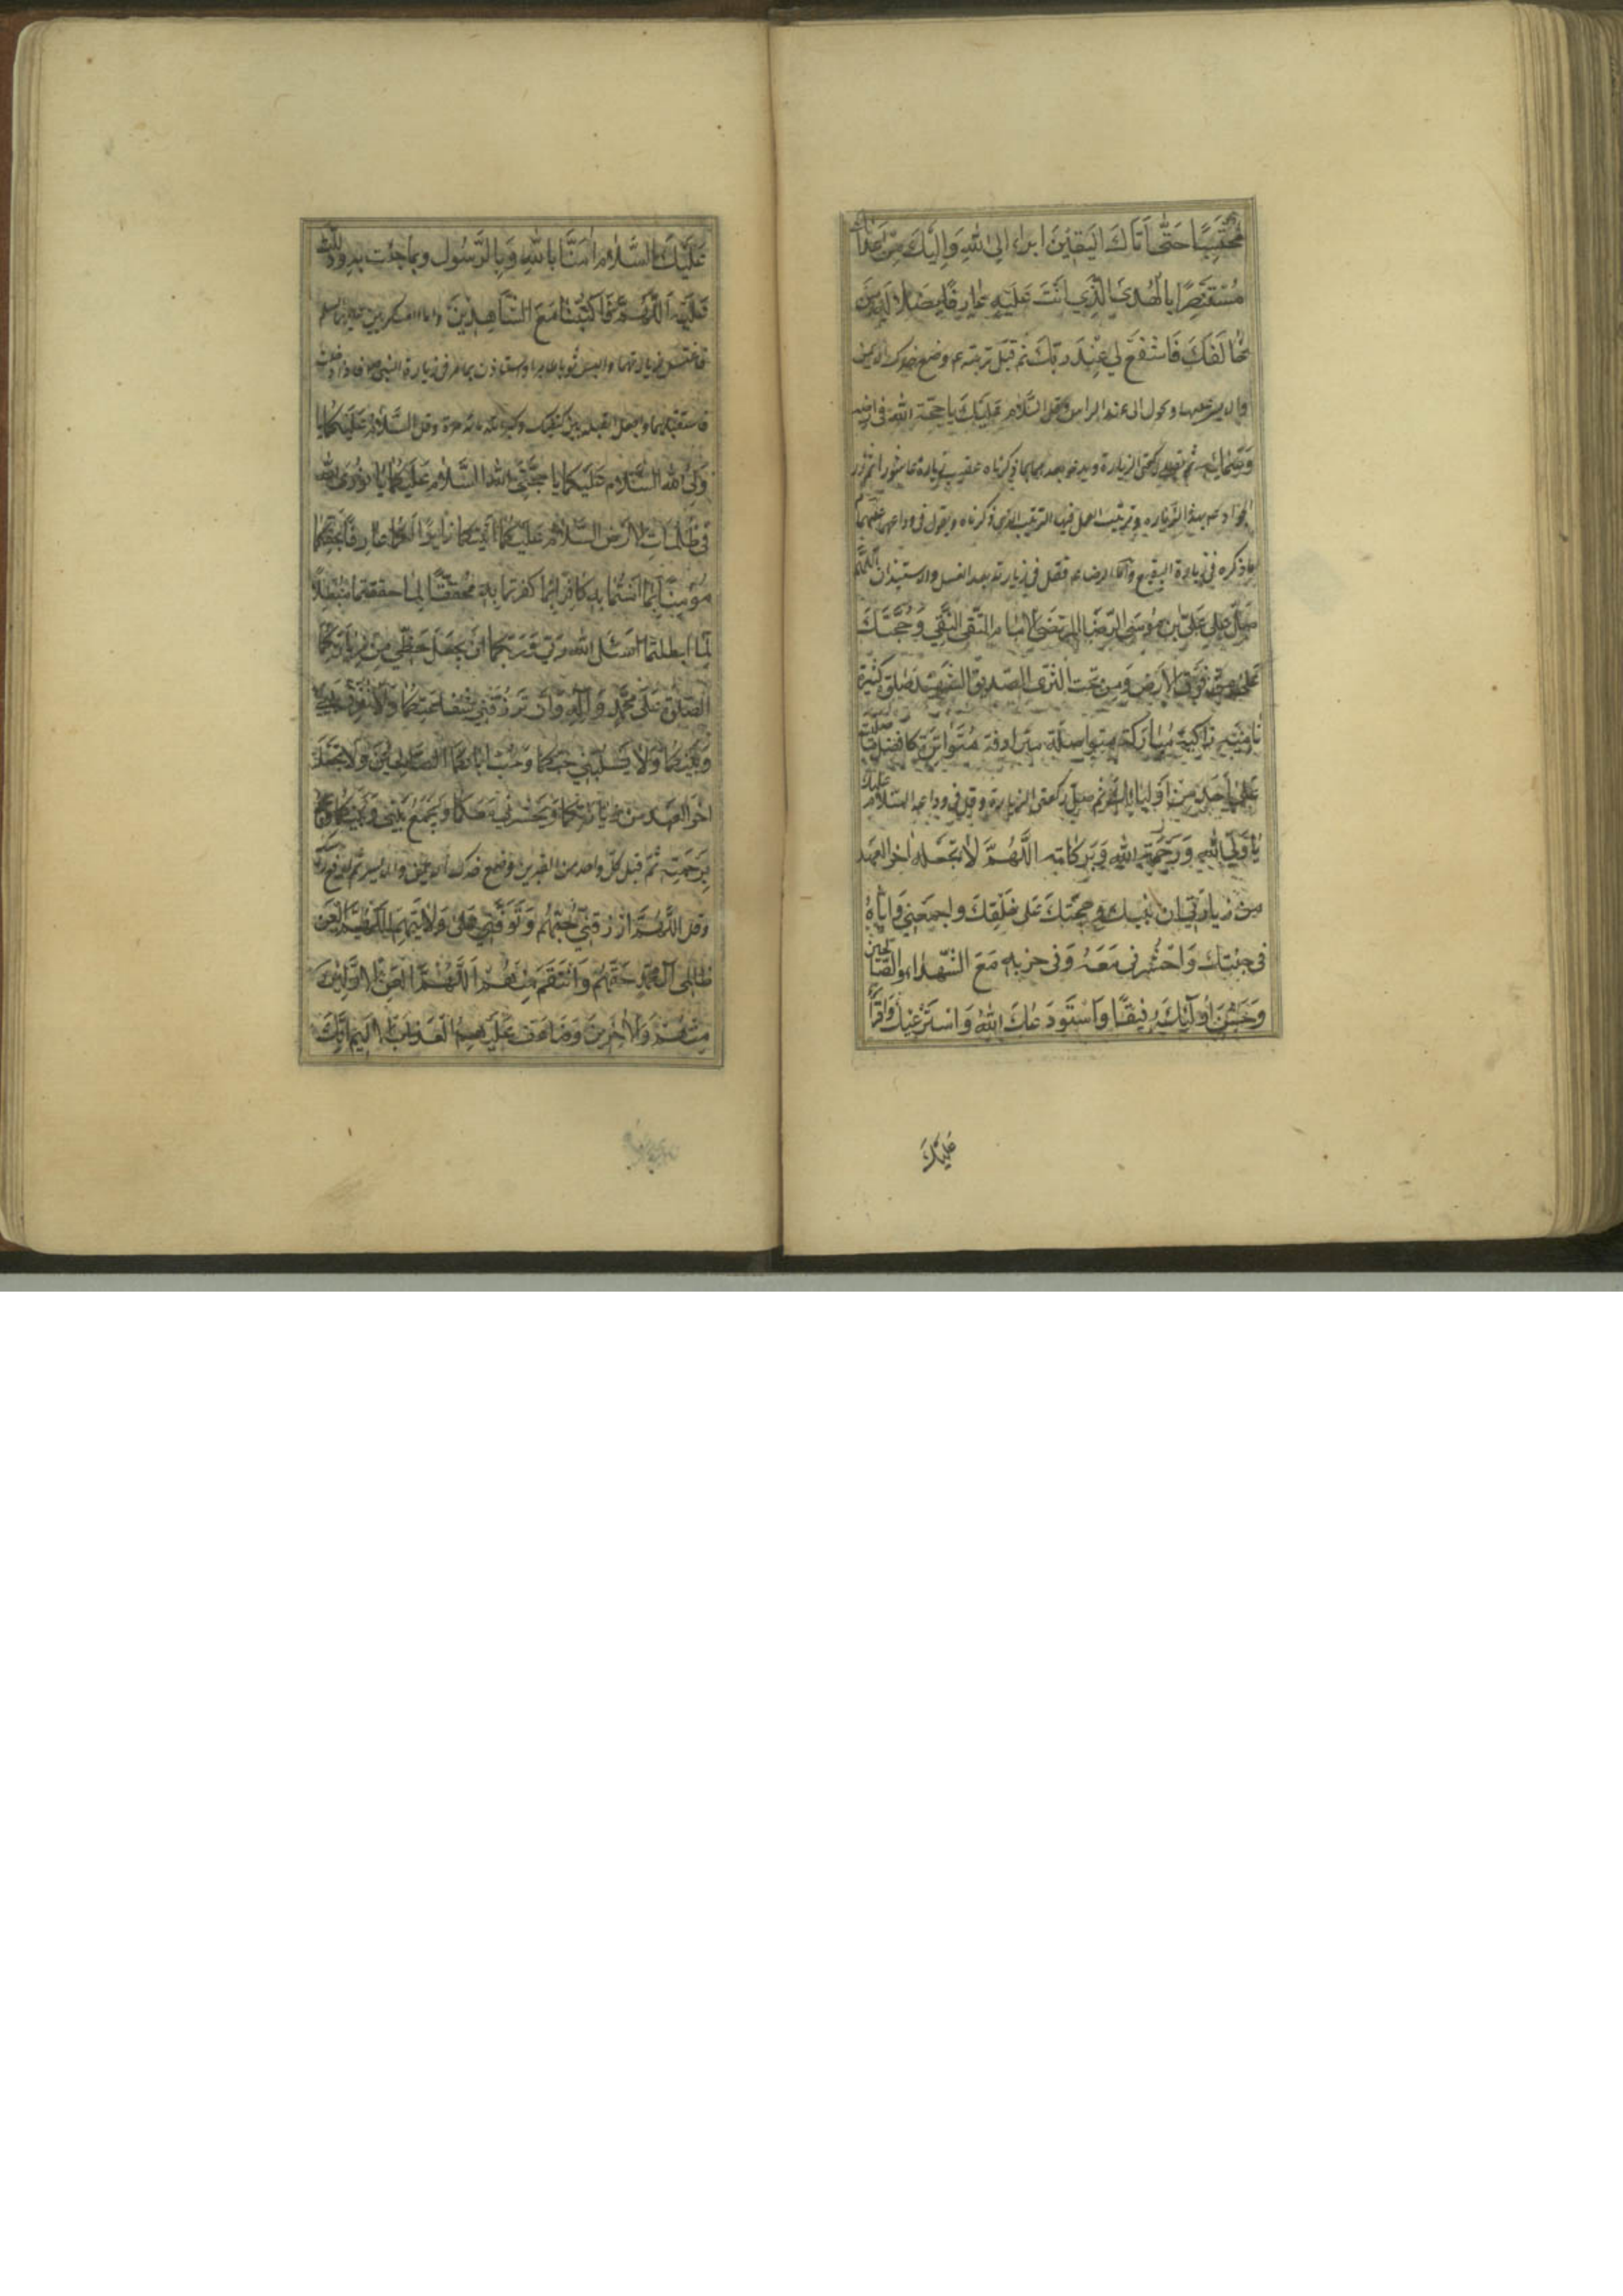 مُحْتَسِبًا حَتّٰى اَتَاكَ الْيَقِيْنَ ابراء الى اللهِ وَ اِلَيْكَ مِنْ اَعْدَائِكَ
مُسْتَبْصِرًا بِالْهُدَى الَّذِي اَنْتَ عَلَيْهِ عَارِفًا بِضَلَالَةِ مَنْ
خَالَفَكَ فَاشْفَعْ لِي عِنْدَ رَبِّكَ ثم قبل تربته ع وضع خدك الايمن
والايسر عليها وتحول الى عند الراس وقل السَّلَامُ عَلَيْكَ يا حجّة اللهِ فى ارضه
وَسَمَائِهِ ثم تصلى ركعتى الزيارة ويدعو بعدهما بما ذكرناه عقيب زيارة عاشورا ثم زر
الجواد ع بهذه الزياره وترتيب العمل فيها الترتيب الذى ذكرناه ويقول فى وداعهما عليهما
ما ذكره فى زيارة البقيع وامّا الرضا ع فقل فى زيارته بعد الغسل والاستيذان اَللّٰهُمَّ
صَلِّ عَلٰى عَلِيِّ بْنِ مُوْسَى الرِّضَا الْمُرْتَضٰى الْاِمَامِ التَّقِيِّ النَّقِيِّ وَحُجَّتِكَ
عَلٰى مَنْ فَوْقَ الْاَرْضِ وَمَنْ تَحْتَ الثَّرٰى الصِّدِّيْقِ الشَّهِيْدِ صَلٰوةً كَثِيْرَةً
نَامِيَةً زَاكِيَةً مُبَارَكَةً متواصلة مترادفة مُتَوَاتِرَةً كَافضل ما صَلَّيْتَ
عَلٰى اَحَدٍ مِنْ اَوْلِيَائِكَ ثم صلّ ركعتى الزيارة وقل فى وداعه السَّلَامُ عَلَيْكَ
يَا وَلِيَّ اللهِ وَرَحْمَةُ اللهِ وَبَرَكَاتُهُ اَللّٰهُمَّ لَا تَجْعَلْهُ اٰخِرَ الْعَهْدِ
مِنْ زِيَارَتِي ابْنَ نَبِيِّكَ وَحُجَّتَكَ عَلٰى خَلْقِكَ وَاجْمَعْنِي وَاِيَّاهُ
فِى جَنَّتِكَ وَاحْشُرْنِى مَعَهُ وَفِى حِزْبِهِ مَعَ الشُّهَدَاءِ وَالصَّالِحِيْنَ
وَحَسُنَ اُولٰئِكَ رَفِيْقًا وَاَسْتَوْدِعُكَ اللهَ وَاَسْتَرْعِيْكَ وَاَقْرَأُ
عَلَيْكَ
عَلَيْكَ السَّلَامَ اٰمَنَّا بِاللهِ وَبِالرَّسُوْلِ وَبِمَا جِئْتَ بِهِ وَدَلَلْتَ
عَلَيْهِ اَللّٰهُمَّ فَاكْتُبْنَا مَعَ الشَّاهِدِيْنَ واما العسكريين عليهما السلم
فاغتسل لزيارتهما والبس ثوبا طاهرا واستاذن بما مر فى زيارة النبى ص فاذا دخلت
فاستقبلهما واجعل القبلة بين كتفيك وكبر الله مائة مرة وقل السَّلَامُ عَلَيْكُمَا يَا
وَلِيَّيِ اللهِ السَّلَامُ عَلَيْكُمَا يَا حُجَّتَيِ اللهِ السَّلَامُ عَلَيْكُمَا يَا نُوْرَيِ اللهِ
فِى ظُلُمَاتِ الْاَرْضِ السَّلَامُ عَلَيْكُمَا اَتَيْتُكُمَا زَائِرًا لَكُمَا عَارِفًا بِحَقِّكُمَا
مُؤْمِنًا بِمَا اٰمَنْتُمَا بِهِ كَافِرًا بِمَا كَفَرْتُمَا بِهِ مُحَقِّقًا لِمَا حَقَّقْتُمَا مُبْطِلًا
لِمَا اَبْطَلْتُمَا اَسْئَلُ اللهَ رَبِّي وَرَبَّكُمَا اَنْ يَجْعَلَ حَظِّي مِنْ زِيَارَتِكُمَا
الصَّلٰوةَ عَلٰى مُحَمَّدٍ وَاٰلِهِ وَاَنْ يَرْزُقَنِي شَفَاعَتَكُمَا وَلَا يُفَرِّقَ بَيْنِي
وَبَيْنَكُمَا وَلَا يَسْلُبَنِي حُبَّكُمَا وَحُبَّ اٰبَائِكُمَا الصَّالِحِيْنَ وَلَا يَجْعَلَهُ
اٰخِرَ الْعَهْدِ مِنْ زِيَارَتِكُمَا وَيَحْشُرَنِي مَعَكُمَا وَيَجْمَعَ بَيْنِي وَبَيْنَكُمَا
بِرَحْمَتِهِ ثُمَّ قبل كلّ واحد من القبرين وضع خدك الايمن والايسر ثم ارفع
وقل اَللّٰهُمَّ ارْزُقْنِي حُبَّهُمْ وَتَوَفَّنِي عَلٰى وَلَايَتِهِمْ اَللّٰهُمَّ الْعَنْ
ظَالِمِي اٰلِ مُحَمَّدٍ حَقَّهُمْ وَانْتَقِمْ مِنْهُمْ اَللّٰهُمَّ الْعَنِ الْاَوَّلِيْنَ
مِنْهُمْ وَالْاٰخِرِيْنَ وَضَاعِفْ عَلَيْهِمُ الْعَذَابَ الْاَلِيْمَ اِنَّكَ